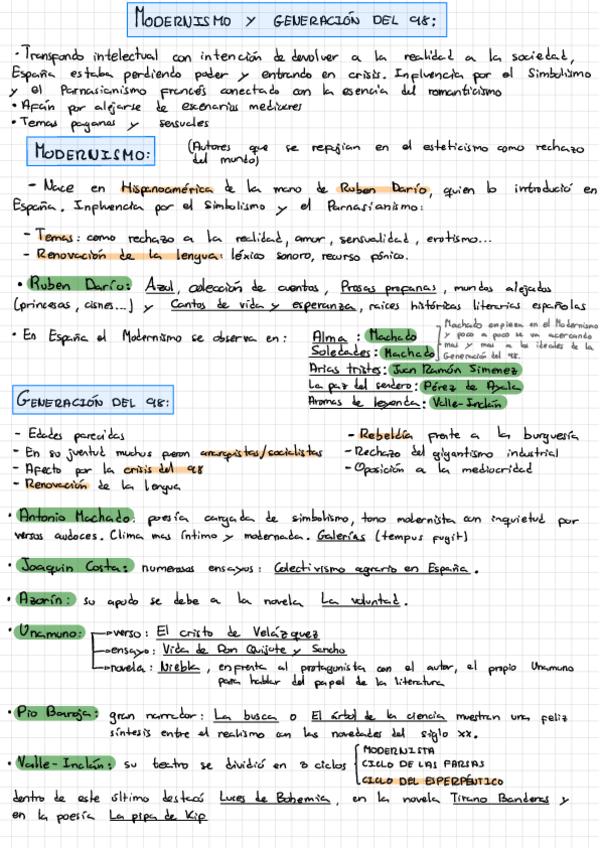 MODERNISMO Y GENERACIÓN DEL 98:
· Transfondo intelectual con intención de devolver a la realidad a la sociedad,
España estaba perdiendo poder y entrando en crisis. Influencia por el Simbolismo
y el Parnasianismo francés conectado con la esencia del romanticismo
• Afán por alejarse de escenarios mediocres
• Temas paganos y sensuales
MODERNISMO: (Autores que se refugian en el esteticismo como rechazo
del mundo)
- Nace en Hispanoamérica de la mano de Ruben Darío, quien lo introdució en
España. Influencia por el Simbolismo y el Parnasianismo:
- Temas: como rechazo a la realidad, amor, sensualidad, erotismo...
- Renovación de la lengua: léxico sonoro, recurso fónico.
• Ruben Darío: Azul, colección de cuentos, Prosas profanas, mundos alejados
(princesas, cisnes...) y Cantos de vida y esperanza, raices históricas literarias españolas
• En España el Modernismo se observa en: Alma : Machado
Soledades: Machado
Machado empieza en el Modernismo
y poco a poco se va acercando
mas y mas a los ideales de la
Generación del 98.
Arias tristes: Juan Ramón Simenez
La paz del sendero: Pérez de Ayala
Aromas de leyenda: Valle-Inclán
GENERACIÓN DEL 98:
- Edades parecidas
- En su juventud muchos fueron anarquistas/socialistas
- Afecto por la crisis del 98
- Renovación de la lengua
- Rebeldía frente a la burguesía
- Rechazo del gigantismo industrial
- Oposición a la mediocridad
· Antonio Machado: poesía cargada de simbolismo, tono modernista con inquietud por
versos audaces. Clima mas íntimo y modernada. Galerías (tempus fugit)
· Joaquin Costa: numerosos ensayos: Colectivismo agrario en España.
· Azorín: su apodo se debe a la novela La voluntad.
· Unamuno: verso: El cristo de Velázquez
ensayo: Vida de Don Quijote y Sancho
novela: Niebla, enfrenta al protagonista con el autor, el propio Unamuno
para hablar del papel de la literatura
· Pio Baroja: gran narrador: La busca o El árbol de la ciencia muestran una feliz
síntesis entre el realismo con las novedades del siglo XX.
• Valle-Inclán: su teatro se dividió en 3 ciclos
MODERNISTA
CICLO DE LAS FARSAS
CICLO DEL ESPERPÉNTICO
dentro de este último destacó Luces de Bohemia, en la novela Tirano Banderas y
en la poesía La pipa de Kip